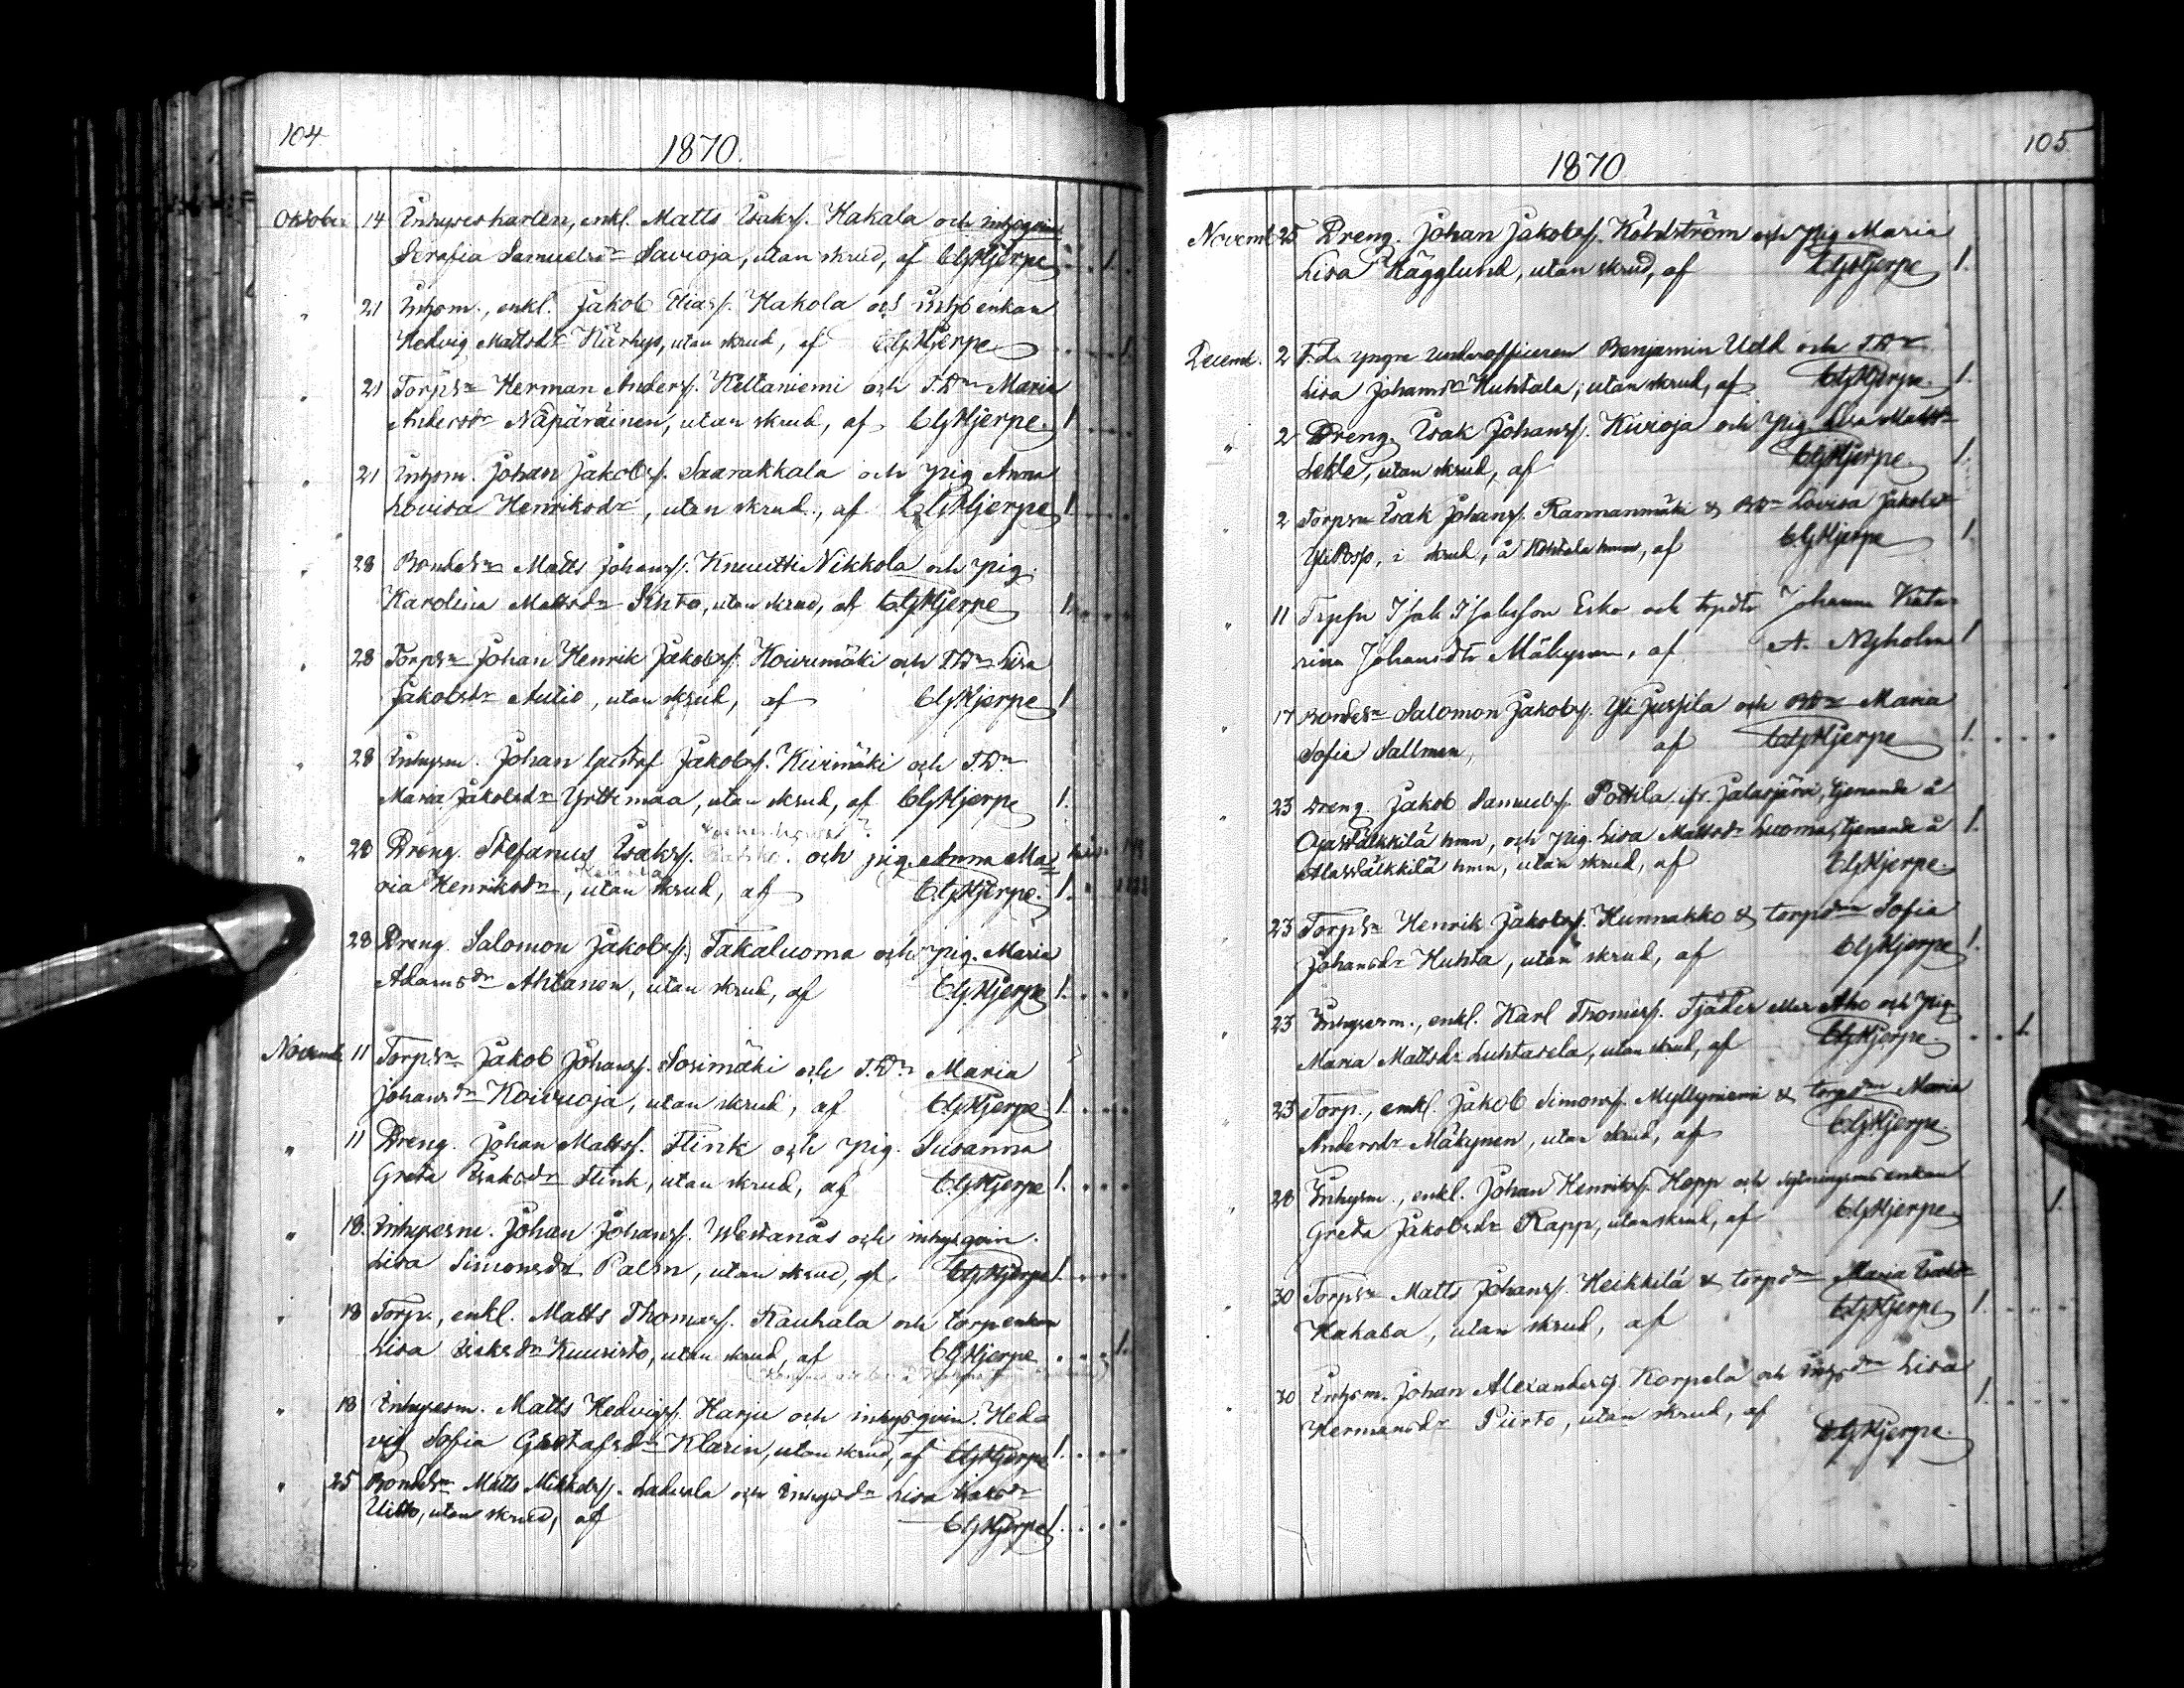 104
1870.
Oktober 14 Inhyseskarlen, enkl. Matts Isaksf. Hakala och inhysqvin.
Serafia Samuelsdr Savioja, utan skrud, af CGHjerpe 1.
" 21 Inhysm., enkl. Jakob Eliasf. Hakola och inhysenkan
Hedvig Mattsdr Kärhys, utan skrud, af CGHjerpe 1.
" 21 Torpsn Herman Andersf. Keltaniemi och T.Dn Maria
Andersdr Näpäräinen, utan skrud, af CGHjerpe. 1
" 21 Inhysm. Johan Jakobsf. Saarakkala och pig. Anna
Lovisa Henriksdr, utan skrud, af CGHjerpe 1.
28 Bondesn Matts Johansf. Knuutti Nikkola och pig.
Karolina Mattsdr Sihto, utan skrud, af CGHjerpe 1.
" 28 Torpsn Johan Henrik Jakobsf. Koivumäki och T.Dn Lisa
Jakobsdr Autio, utan skrud, af CGHjerpe 1
" 28 Inhysm. Johan Gustaf Jakobsf. Kivimäki och T.Dn
Maria Jakobsdr Yrttimaa, utan skrud, af CGHjerpe 1.
" 28 Dreng. Stefanus Isaksf. och pig. Anna Ma=
ria Henriksdr, utan skrud, af CGHjerpe. 1.
28 Dreng. Salomon Jakobsf. Takaluoma och pig. Maria
Adamsdr Ahtanen, utan skrud, af CGHjerpe 1.
Novemb. 11 Torpsn Jakob Johansf. Sosimäki och T.Dn Maria
Johansdr Koivuoja, utan skrud, af CGHjerpe 1.
" 11 Dreng. Johan Mattsf. Flink och pig. Susanna
Greta Isaksdr Flink, utan skrud, af CGHjerpe 1.
" 18. Inhysesm. Johan Johansf. Westanås och inhysqvin.
Lisa Simonsdr Palm, utan skrud, af CGHjerpe 1.
" 18 Torp., enkl. Matts Thomasf. Rauhala och torpenkan
Lisa Isaksdr Kuusisto, utan skrud, af CGHjerpe 1.
" 18 Inhysesm. Matts Hedvigsf. Harju och inhysqvin. Hed
vig Sofia Gustafsdr Klarin, utan skrud, af CGHjerpe 1.
" 25 Bondesn Matts Mikkelsf. och Inhysdr Lisa Isaksdr
Uitto, utan skrud, af CGHjerpe 1.
105
1870
Novemb. 25 Dreng. Johan Jakobsf. och pig. Maria
Lisa Hägglund, utan skrud, af CGHjerpe 1.
Decemb. 2 F.d. yngre underofficeren Benjamin Udd och T.Dn
Lisa Johansdr Huhtala, utan skrud, af CGHjerpe. 1.
" 2 Dreng. Isak Johansf. Kivioja och pig. Lisa Mattsdr
, utan skrud, af CGHjerpe 1.
" 2 Torpsn Isak Johansf. Rannanmäki & BDn Lovisa Jakobsdr
, i skrud, å Kohtala hmn, af CGHjerpe 1.
" 11 Trpsn Isak Isaksson Esko och trpdtr Johanna Kata-
rina Johansdtr Mäkynen, af A. Nyholm 1
" 17 Bondesn Salomon Jakobsf. Yli Jussila och BDn Maria
Sofia Sallmen, af CGHjerpe 1.
" 23 Dreng. Jakob Samuelsf. Pottila ifr. Jalasjärvi, tjenande å
Ojastälkkilä hmn, och pig. Lisa Mattsdr Luoma, tjenande å 1.
Alastälkkilä hmn, utan skrud, af CGHjerpe.
" 23 Torpsn Henrik Jakobsf. Hunnakko & torpdn Sofia
Johansdr Huhta, utan skrud, af CGHjerpe 1.
" 23 Inhysesm., enkl. Karl Thomasf. Tjäder eller Aho och pig.
Maria Mattsdr Luhtasela, utan skrud, af CGHjerpe. 1.
23 Torp., enkl. Jakob Simonsf. Myllyniemi & torpdn Maria
Andersdr Mäkynen, utan skrud, af CGHjerpe.
" 28 Inhysm., enkl. Johan Henriksf. Hopp och sytningsenkan
Greta Jakobsdr Rapp, utan skrud, af CGHjerpe 1.
" 30 Torpsn Matts Johansf. Heikkilä & torpdn Maria Isaksdr
Hakala, utan skrud, af CGHjerpe 1.
" 30 Inhysm. Johan Alexandersf. Korpela och inhysdn Lisa
Hermansdr Piirto, utan skrud, af CGHjerpe. 1.